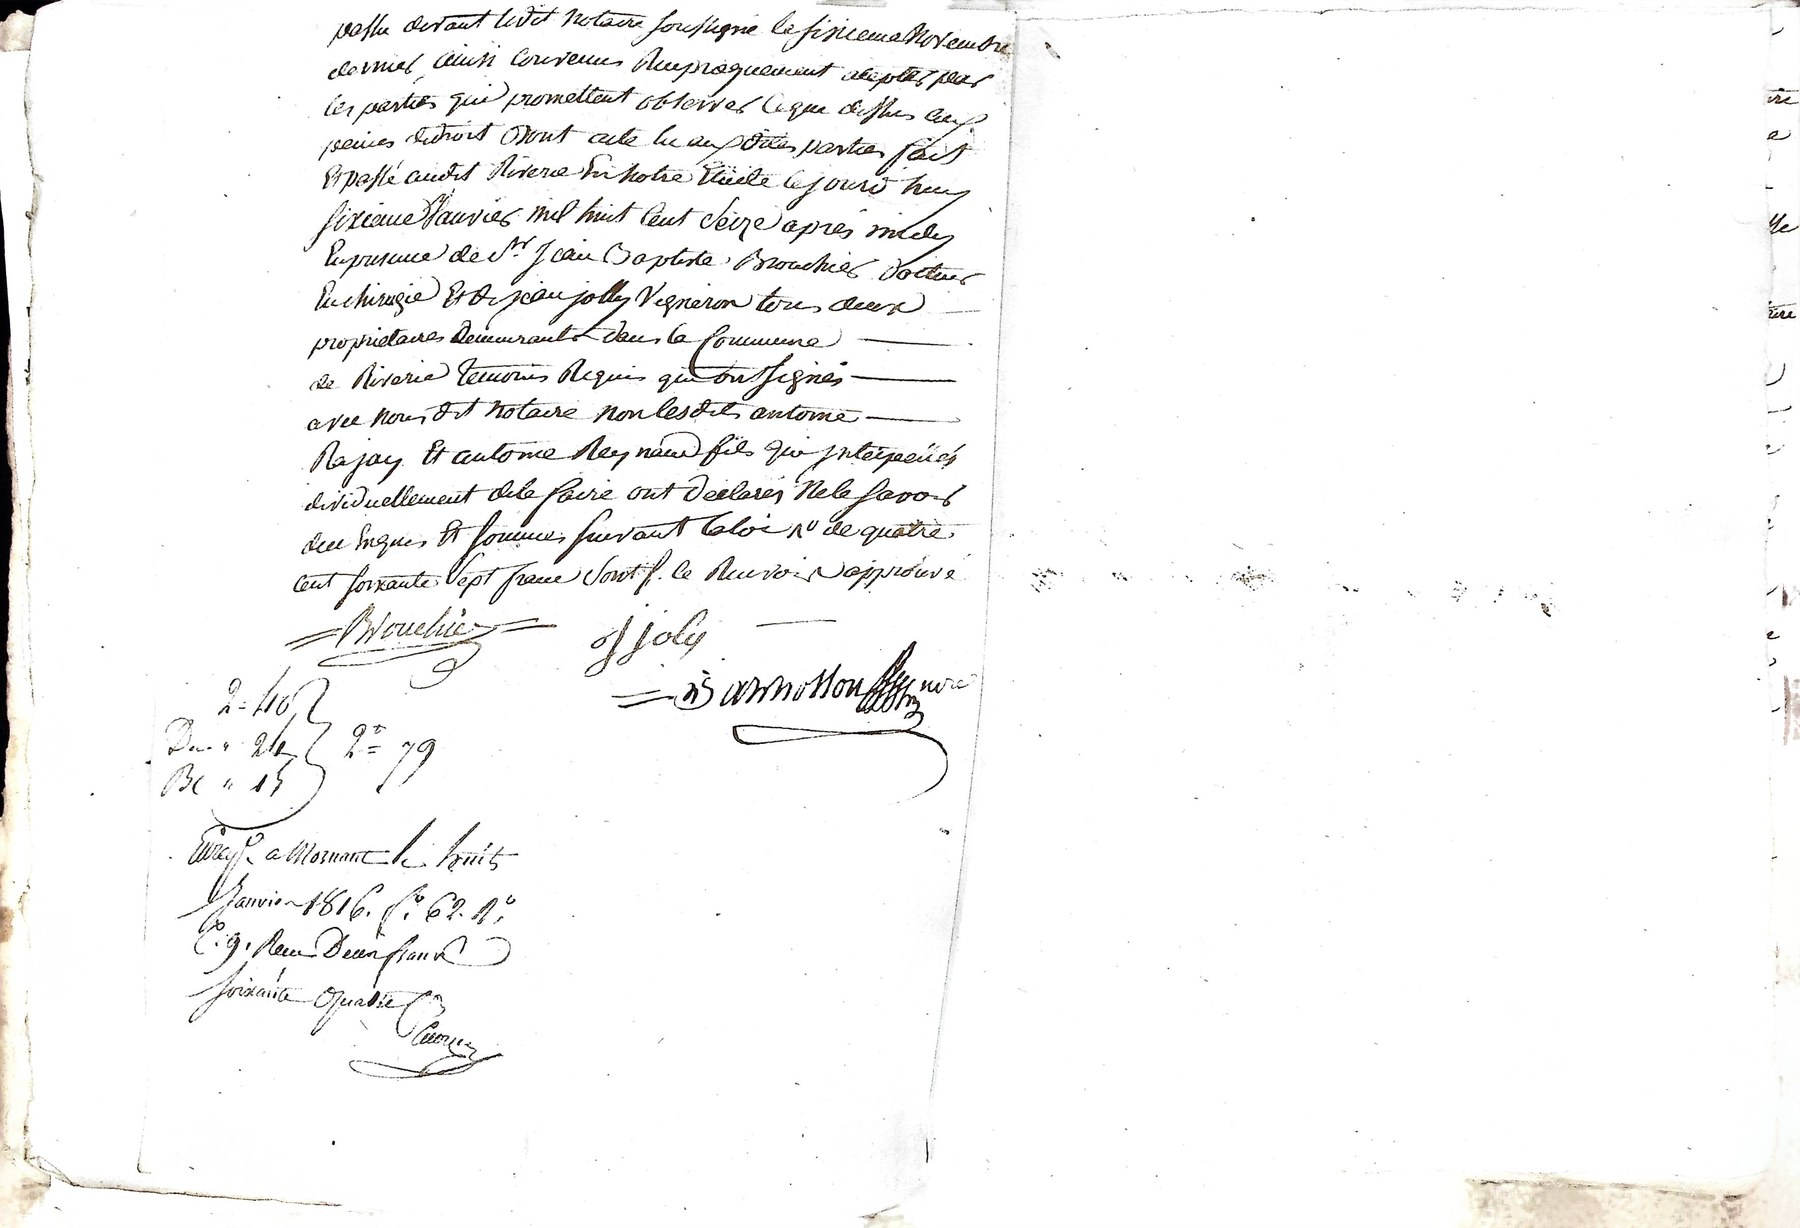 passu devant ledit notaire soussigné le sixieme novembre
dernier, ainsi convenus Reciproquement acceptés par
les parties qui promettent observer ceque dessus aux
peines dedroit Dont acte lu aux dites parties fait
Et passé audit Riverie En notre Etude cejourd huy
sixieme Janvier mil huit Cent Seize aprés midy
En presence de Sr. Jean Baptiste Brouchier docteur
En chirugie Et de jean jolly Vigneron tous deux
proprietaires demeurants dans la Commune
de Riverie temoins Requis qui ont signés
avec nous dit notaire non lesdits antoine
Rajay Et antoine Reynaud fils qui jnterpellés
dividuellement dele faire ont déclarés Nele savoir
due Enquis Et sommes suivant la loi no de quatre
cent soixante sept franc dont f. le Renvoi approuvé
Brouchier
j joly
Barmotton nore
2 = 40
De. " 24
2 = 79
Be " 15
Enregé. a Mornant le huit
Janvier 1816. fo. 62. Ro.
Co. 9. Recu Deux francs
soixante quatre Cmes